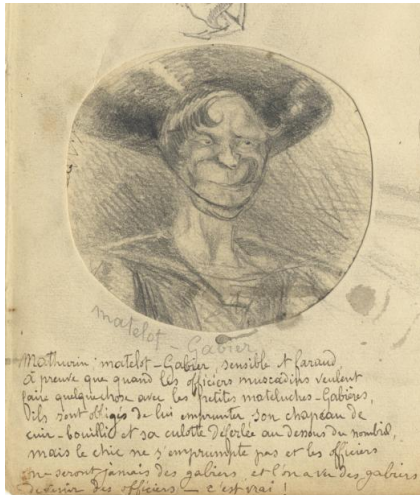 matelot - Gabier
Mathurin matelot-Gabier, sensible et faraud
à preuve que quand les officiers muscadins veulent
faire quelque chose avec les petites mateluches-Gabières,
ils sont obligés de lui emprunter son chapeau de
cuir-bouilli et sa culotte déferlée au dessous du nombril,
mais le chic ne s'emprumpte pas et les officiers
ne seront jamais des gabiers et l'on a vu des gabiers
devenir des officiers — c'est vrai !